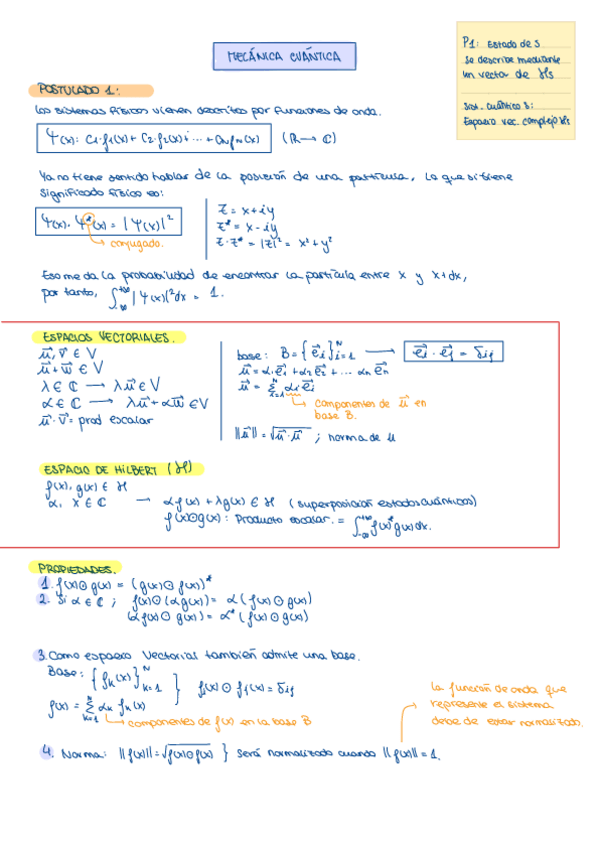 MECÁNICA CUÁNTICA
P1: Estado de S
se describe mediante
un vector de ℋs
Sist. cuántico S:
Espacio vec. complejo ℋs
POSTULADO 1:
Los sistemas físicos vienen descritos por funciones de onda.
Ψ(x): C₁·f₁(x) + C₂·f₂(x) + ... + Cₙfₙ(x) (ℝ → ℂ)
Ya no tiene sentido hablar de la posición de una partícula, lo que si tiene
significado físico es:
Ψ(x)·Ψ*(x) = |Ψ(x)|²
→ conjugado.
z = x + iy
z* = x - iy
z·z* = |z|² = x² + y²
Eso me da la probabilidad de encontrar la partícula entre x y x+dx,
por tanto, ∫₋∞^+∞ |Ψ(x)|² dx = 1.
ESPACIOS VECTORIALES.
u⃗, v⃗ ∈ V
u⃗ + w⃗ ∈ V
λ ∈ ℂ → λu⃗ ∈ V
α ∈ ℂ → λu⃗ + αw⃗ ∈ V
u⃗·v⃗ = prod escalar
base: B = {e⃗ᵢ}ᴺᵢ₌₁ → e⃗ᵢ·e⃗ⱼ = δᵢⱼ
u⃗ = α₁e⃗₁ + α₂e⃗₂ + ... αₙe⃗ₙ
u⃗ = Σᴺᵢ₌₁ αᵢe⃗ᵢ
→ componentes de u⃗ en
base B.
||u⃗|| = √u⃗·u⃗ ; norma de u
ESPACIO DE HILBERT (ℋ)
f(x), g(x) ∈ ℋ
α, λ ∈ ℂ → αf(x) + λg(x) ∈ ℋ (superposición estados cuánticos)
f(x)⊙g(x): Producto escalar. = ∫₋∞^+∞ f(x)*g(x)dx.
PROPIEDADES.
1. f(x)⊙g(x) = (g(x)⊙f(x))*
2. Si α ∈ ℂ ; f(x)⊙(αg(x)) = α(f(x)⊙g(x))
(αf(x)⊙g(x)) = α*(f(x)⊙g(x))
3. Como espacio vectorial también admite una base.
Base: {fₖ(x)}ᴺₖ₌₁ } fᵢ(x)⊙fⱼ(x) = δᵢⱼ
f(x) = Σᴺₖ₌₁ αₖ fₖ(x)
→ componentes de f(x) en la base B
La función de onda que
represente el sistema
debe de estar normalizado.
4. Norma: ||f(x)|| = √f(x)⊙f(x) } Será normalizado cuando ||f(x)|| = 1.